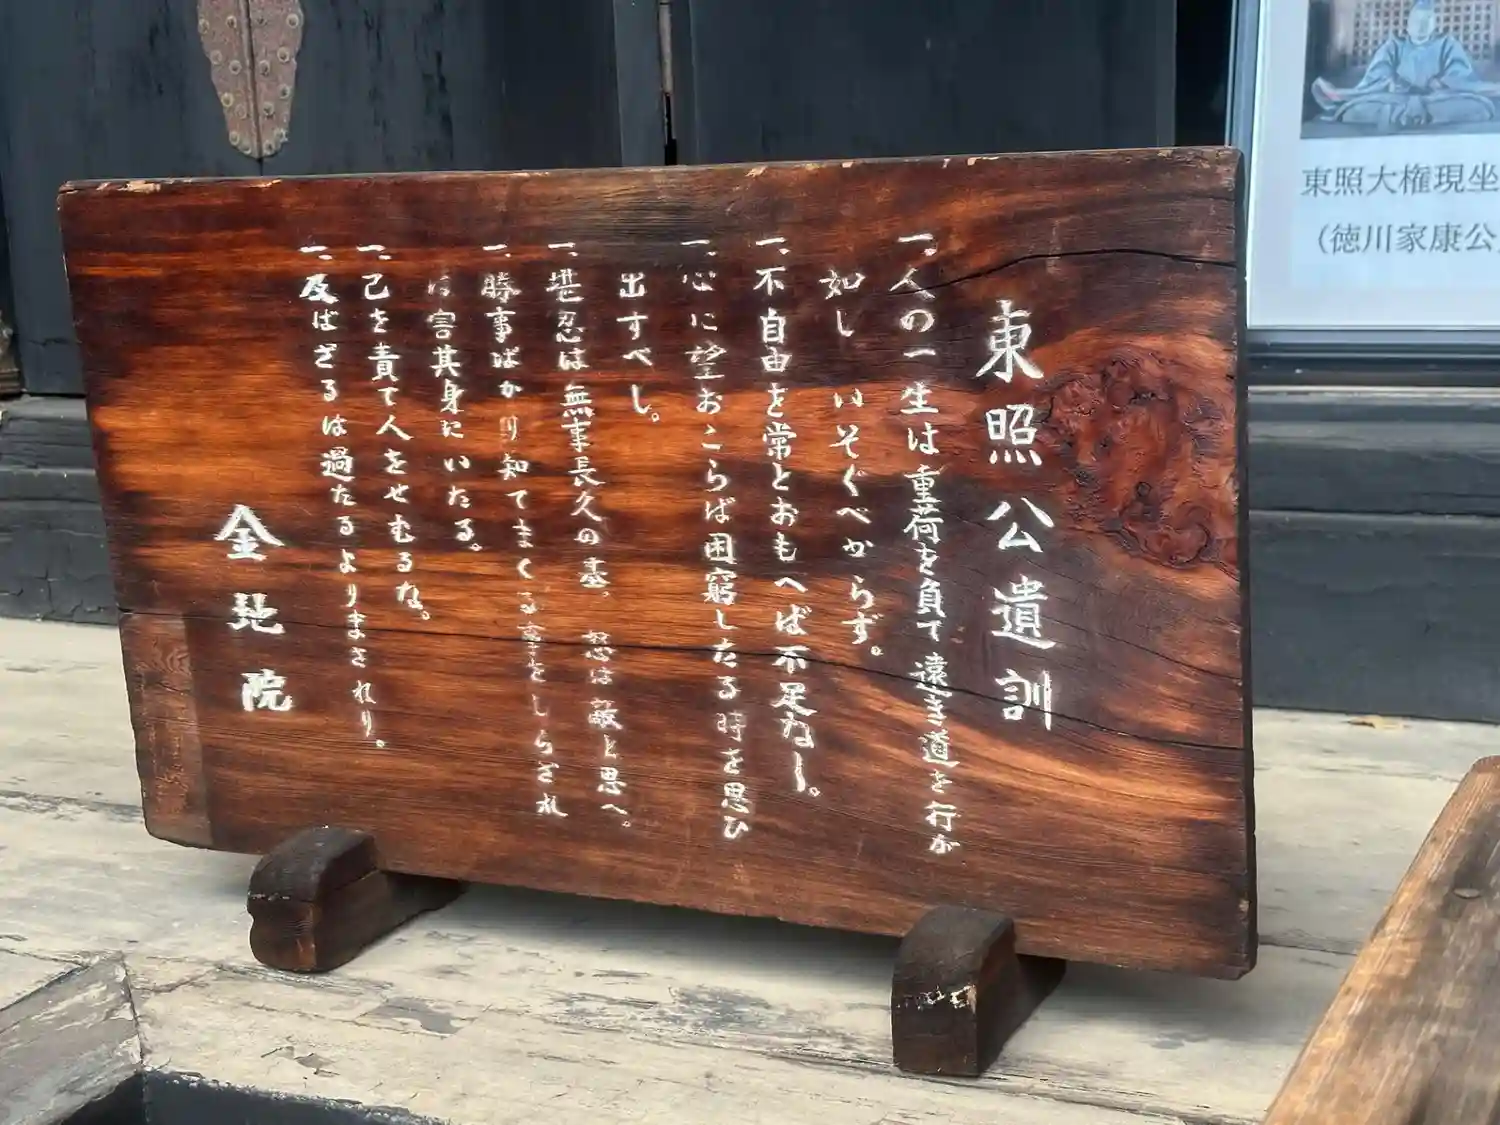 東照公遺訓
一、人の一生は重荷を負て遠き道を行が
如し いそぐべからず。
一、不自由を常とおもへば不足なし。
一、心に望おこらば困窮したる時を思ひ
出すべし。
一、堪忍は無事長久の基、怒は敵と思へ。
一、勝事ばかり知てまくる事をしらざれ
は害其身にいたる。
一、己を責て人をせむるな。
一、及ばざるは過たるよりまされり。
金地院
東照大権現坐
（徳川家康公